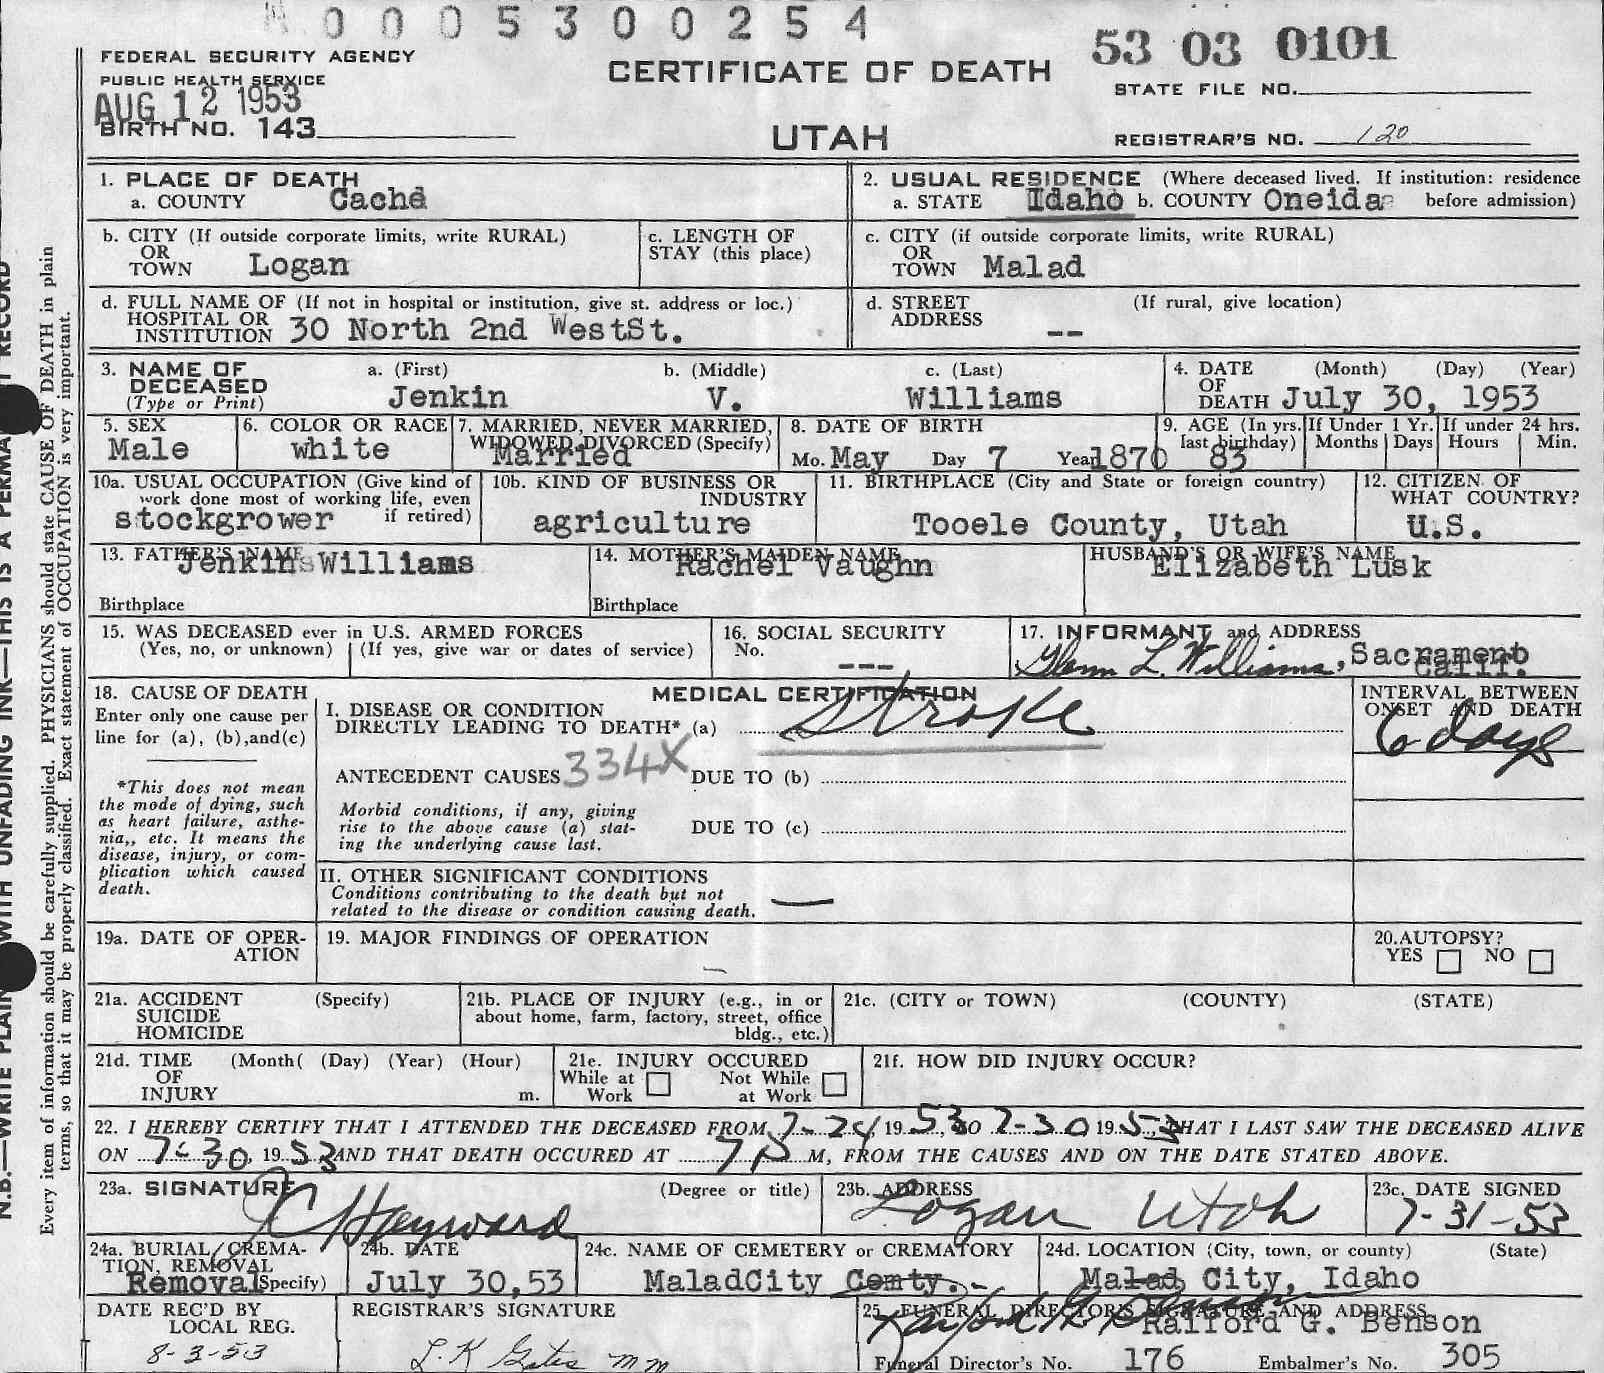 A 0 0 0 5 3 0 0 2 5 4
53 03 0101
FEDERAL SECURITY AGENCY
PUBLIC HEALTH SERVICE
AUG 12 1953
BIRTH NO. 143
CERTIFICATE OF DEATH
UTAH
STATE FILE NO.
REGISTRAR'S NO. 120
1. PLACE OF DEATH
a. COUNTY Cache
2. USUAL RESIDENCE (Where deceased lived. If institution: residence
a. STATE Idaho b. COUNTY Oneida before admission)
b. CITY (If outside corporate limits, write RURAL)
OR
TOWN Logan
c. LENGTH OF
STAY (this place)
c. CITY (if outside corporate limits, write RURAL)
OR
TOWN Malad
d. FULL NAME OF (If not in hospital or institution, give st. address or loc.)
HOSPITAL OR
INSTITUTION 30 North 2nd WestSt.
d. STREET (If rural, give location)
ADDRESS --
3. NAME OF
DECEASED
(Type or Print)
a. (First) b. (Middle) c. (Last)
Jenkin V. Williams
4. DATE (Month) (Day) (Year)
OF
DEATH July 30, 1953
5. SEX
Male
6. COLOR OR RACE
white
7. MARRIED, NEVER MARRIED,
WIDOWED, DIVORCED (Specify)
Married
8. DATE OF BIRTH
Mo. May Day 7 Year 1870
9. AGE (In yrs.
last birthday)
83
If Under 1 Yr.
Months Days
If under 24 hrs.
Hours Min.
10a. USUAL OCCUPATION (Give kind of
work done most of working life, even
if retired)
stockgrower
10b. KIND OF BUSINESS OR
INDUSTRY
agriculture
11. BIRTHPLACE (City and State or foreign country)
Tooele County, Utah
12. CITIZEN OF
WHAT COUNTRY?
U.S.
13. FATHER'S NAME
Jenkins Williams
Birthplace
14. MOTHER'S MAIDEN NAME
Rachel Vaughn
Birthplace
HUSBAND'S OR WIFE'S NAME
Elizabeth Lusk
15. WAS DECEASED ever in U.S. ARMED FORCES
(Yes, no, or unknown) (If yes, give war or dates of service)
16. SOCIAL SECURITY
No. ---
17. INFORMANT and ADDRESS
Glenn L. Williams, Sacramento
Calif.
18. CAUSE OF DEATH
Enter only one cause per
line for (a), (b),and(c)
*This does not mean
the mode of dying, such
as heart failure, asthe-
nia,, etc. It means the
disease, injury, or com-
plication which caused
death.
MEDICAL CERTIFICATION
I. DISEASE OR CONDITION
DIRECTLY LEADING TO DEATH* (a) Stroke
ANTECEDENT CAUSES 334X DUE TO (b)
Morbid conditions, if any, giving
rise to the above cause (a) stat-
ing the underlying cause last.
DUE TO (c)
INTERVAL BETWEEN
ONSET AND DEATH
6 days
II. OTHER SIGNIFICANT CONDITIONS
Conditions contributing to the death but not
related to the disease or condition causing death. —
19a. DATE OF OPER-
ATION
19. MAJOR FINDINGS OF OPERATION
—
20.AUTOPSY?
YES NO
21a. ACCIDENT (Specify)
SUICIDE
HOMICIDE
21b. PLACE OF INJURY (e.g., in or
about home, farm, factory, street, office
bldg., etc.)
21c. (CITY or TOWN) (COUNTY) (STATE)
21d. TIME (Month( (Day) (Year) (Hour)
OF
INJURY m.
21e. INJURY OCCURED
While at Work Not While at Work
21f. HOW DID INJURY OCCUR?
22. I HEREBY CERTIFY THAT I ATTENDED THE DECEASED FROM 7-24, 1953, TO 7-30 1953, THAT I LAST SAW THE DECEASED ALIVE
ON 7-30, 1953 AND THAT DEATH OCCURED AT 7 P M, FROM THE CAUSES AND ON THE DATE STATED ABOVE.
23a. SIGNATURE (Degree or title)
J C Hayward
23b. ADDRESS
Logan Utah
23c. DATE SIGNED
7-31-53
24a. BURIAL/CREMA-
TION, REMOVAL
Removal (Specify)
24b. DATE
July 30,53
24c. NAME OF CEMETERY or CREMATORY
MaladCity Cemty.-
24d. LOCATION (City, town, or county) (State)
Malad City, Idaho
DATE REC'D BY
LOCAL REG.
8-3-53
REGISTRAR'S SIGNATURE
L.K Gates mm
25. FUNERAL DIRECTOR'S SIGNATURE AND ADDRESS
Ralford G. Benson
Funeral Director's No. 176 Embalmer's No. 305
N.B.—WRITE PLAIN WITH UNFADING INK—THIS IS A PERMA T RECORD
Every item of information should be carefully supplied. PHYSICIANS should state CAUSE OF DEATH in plain
terms, so that it may be properly classified. Exact statement of OCCUPATION is very important.